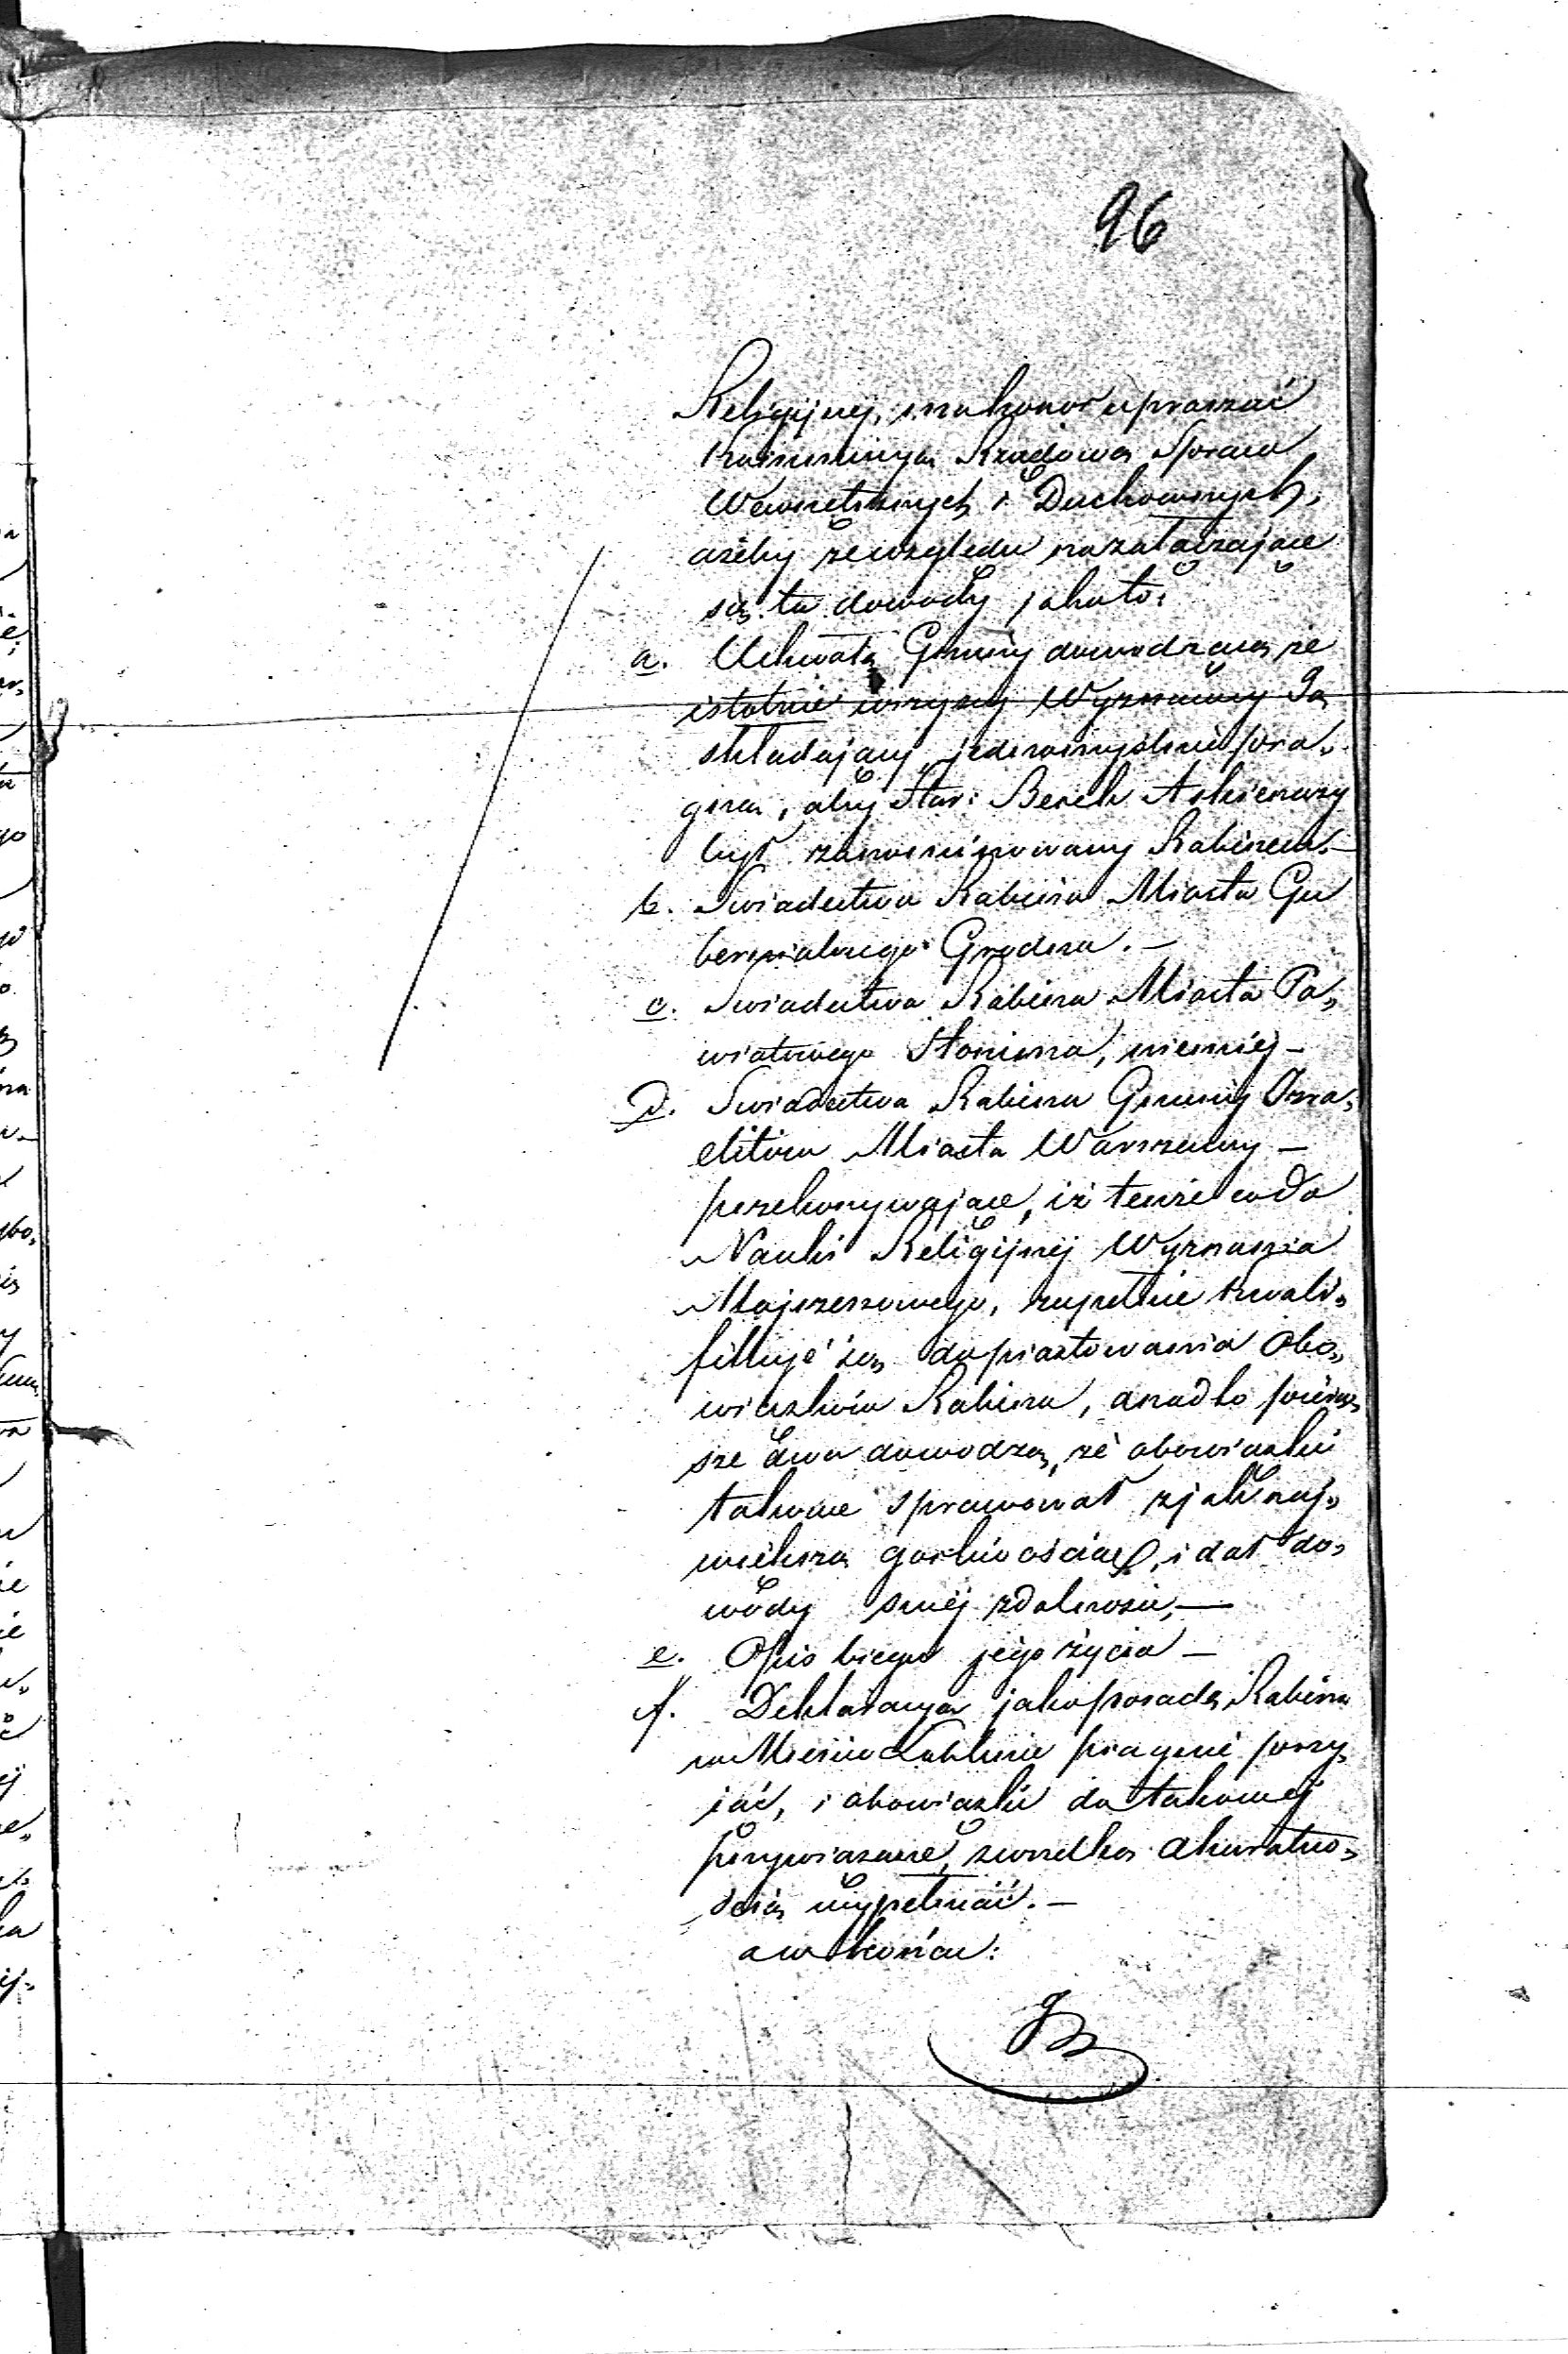 96
Religijnej, ma honor upraszać
Kommissyą Rządową Spraw
Wewnętrznych i Duchownych,
ażeby ze względu na załączające
się tu dowody jakoto:
a. Uchwałę Gminy dowodzącą że
istotnie wszyscy Wyznawcy Ją
składający jednomyślnie pra„
gną, aby Star: Berek Askienazy
był zanominowany Rabinem. —
b. Świadectwa Rabina Miasta Gu
bernialnego Grodna. —
c. Świadectwa Rabina Miasta Po„
wiatowego Słonima, niemniej —
d. Świadectwa Rabina Gminy Izra„
elitów Miasta Warszawy —
przekonywające, iż tenże co do
Nauki Religijnej Wyznania
Mojżeszowego, zupełnie kwali„
fikuje się do piastowania Obo„
wiązków Rabina, a nadto pierw„
sze dwa dowodzą, że obowiązki
takowe sprawował z jak naj„
większą gorliwością, i dał do„
wody swej zdolności, —
e. Opis biegu jego życia —
f. Deklaracya jako posadę Rabina
w Mieście Lublinie pragnie przy
jąć, i obowiązki do takowej
przywiązane, z wszelką akuratno„
ścią wypełniać. —
a w końcu: